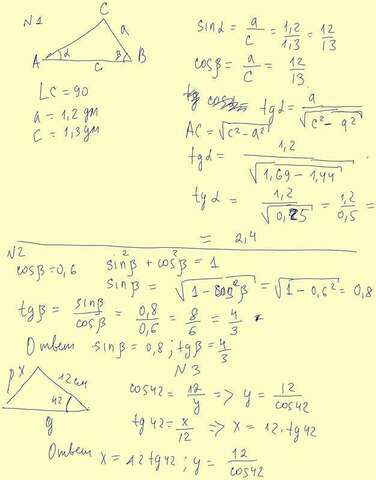 N1
C
a
A α β B
c
∟C = 90
a = 1,2 дм
C = 1,3 дм
sinα = a/c = 1,2/1,3 = 12/13
cosβ = a/c = 12/13
tgα = a/√(c²-a²)
AC = √(c²-a²)
tgα = 1,2/√(1,69-1,44)
tgα = 1,2/√(0,25) = 1,2/0,5 =
= 2,4
N2
cosβ = 0,6 sin²β + cos²β = 1
sinβ = √(1-cos²β) = √(1-0,6²) = 0,8
tgβ = sinβ/cosβ = 0,8/0,6 = 8/6 = 4/3
Ответ sinβ = 0,8; tgβ = 4/3
N3
x 12 см
42
y
cos42 = 12/y => y = 12/cos42
tg42 = x/12 => x = 12·tg42
Ответ x = 12tg42; y = 12/cos42